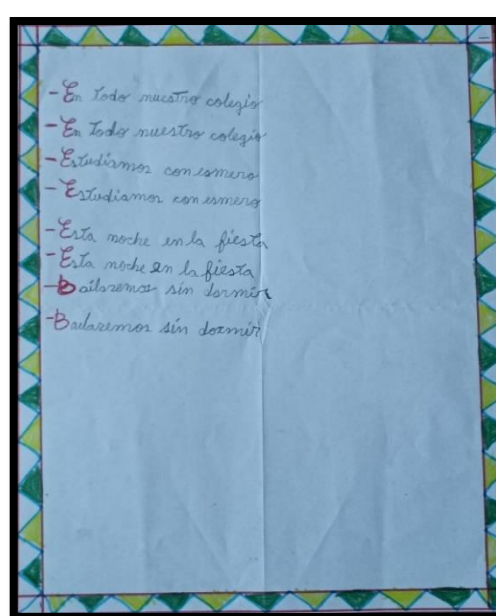 -En todo nuestro colegio
-En todo nuestro colegio
-Estudiamos con esmero
-Estudiamos con esmero
-Esta noche en la fiesta
-Esta noche en la fiesta
-Bailaremos sin dormir
-Bailaremos sin dormir